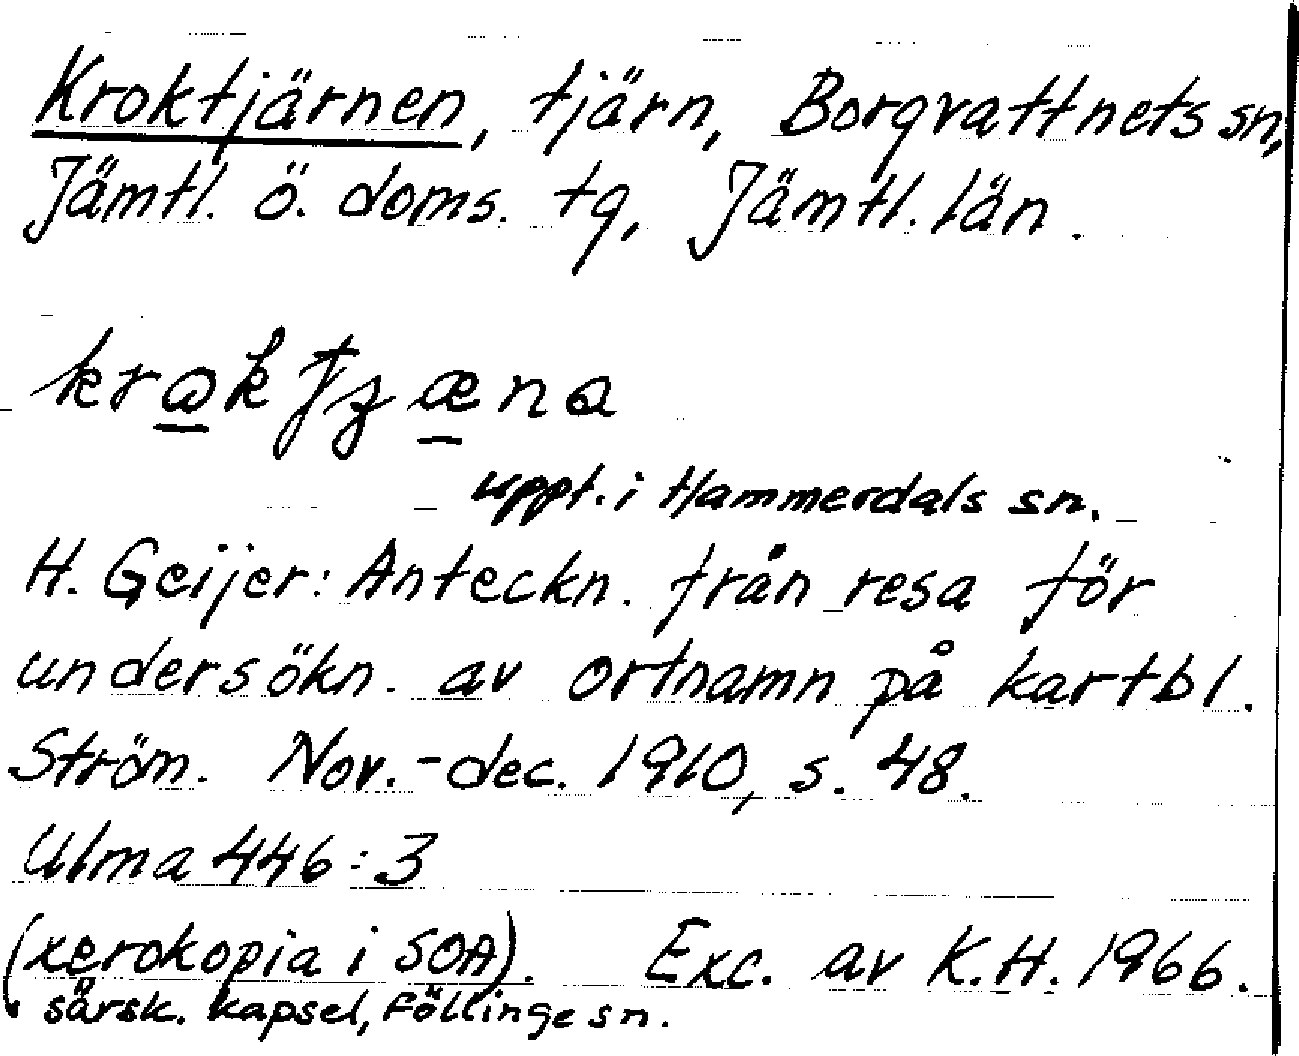 Kroktjärnen, tjärn, Borgvattnets sn,
Jämtl. ö. doms. tg, Jämtl. län.
uppt. i Hammerdals sn.
H. Geijer: Anteckn. från resa för
undersökn. av ortnamn på kartbl.
Ström. Nov.-dec. 1910, s. 48.
Ulma 446:3
(xerokopia i SOA). Exc. av K.H. 1966.
i särsk. kapsel, Föllinge sn.